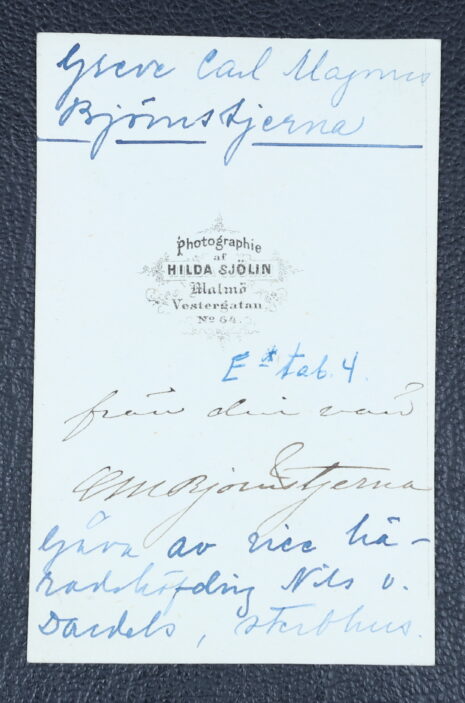 Greve Carl Magnus
Björnstjerna
Photographie
af
HILDA SJÖLIN
Malmö
Vestergatan
No 64.
E* tab. 4.
från din vän
CMBjörnstjerna
Gåva av vice hä-
radshöfding Nils v.
Dardels, sterbhus.